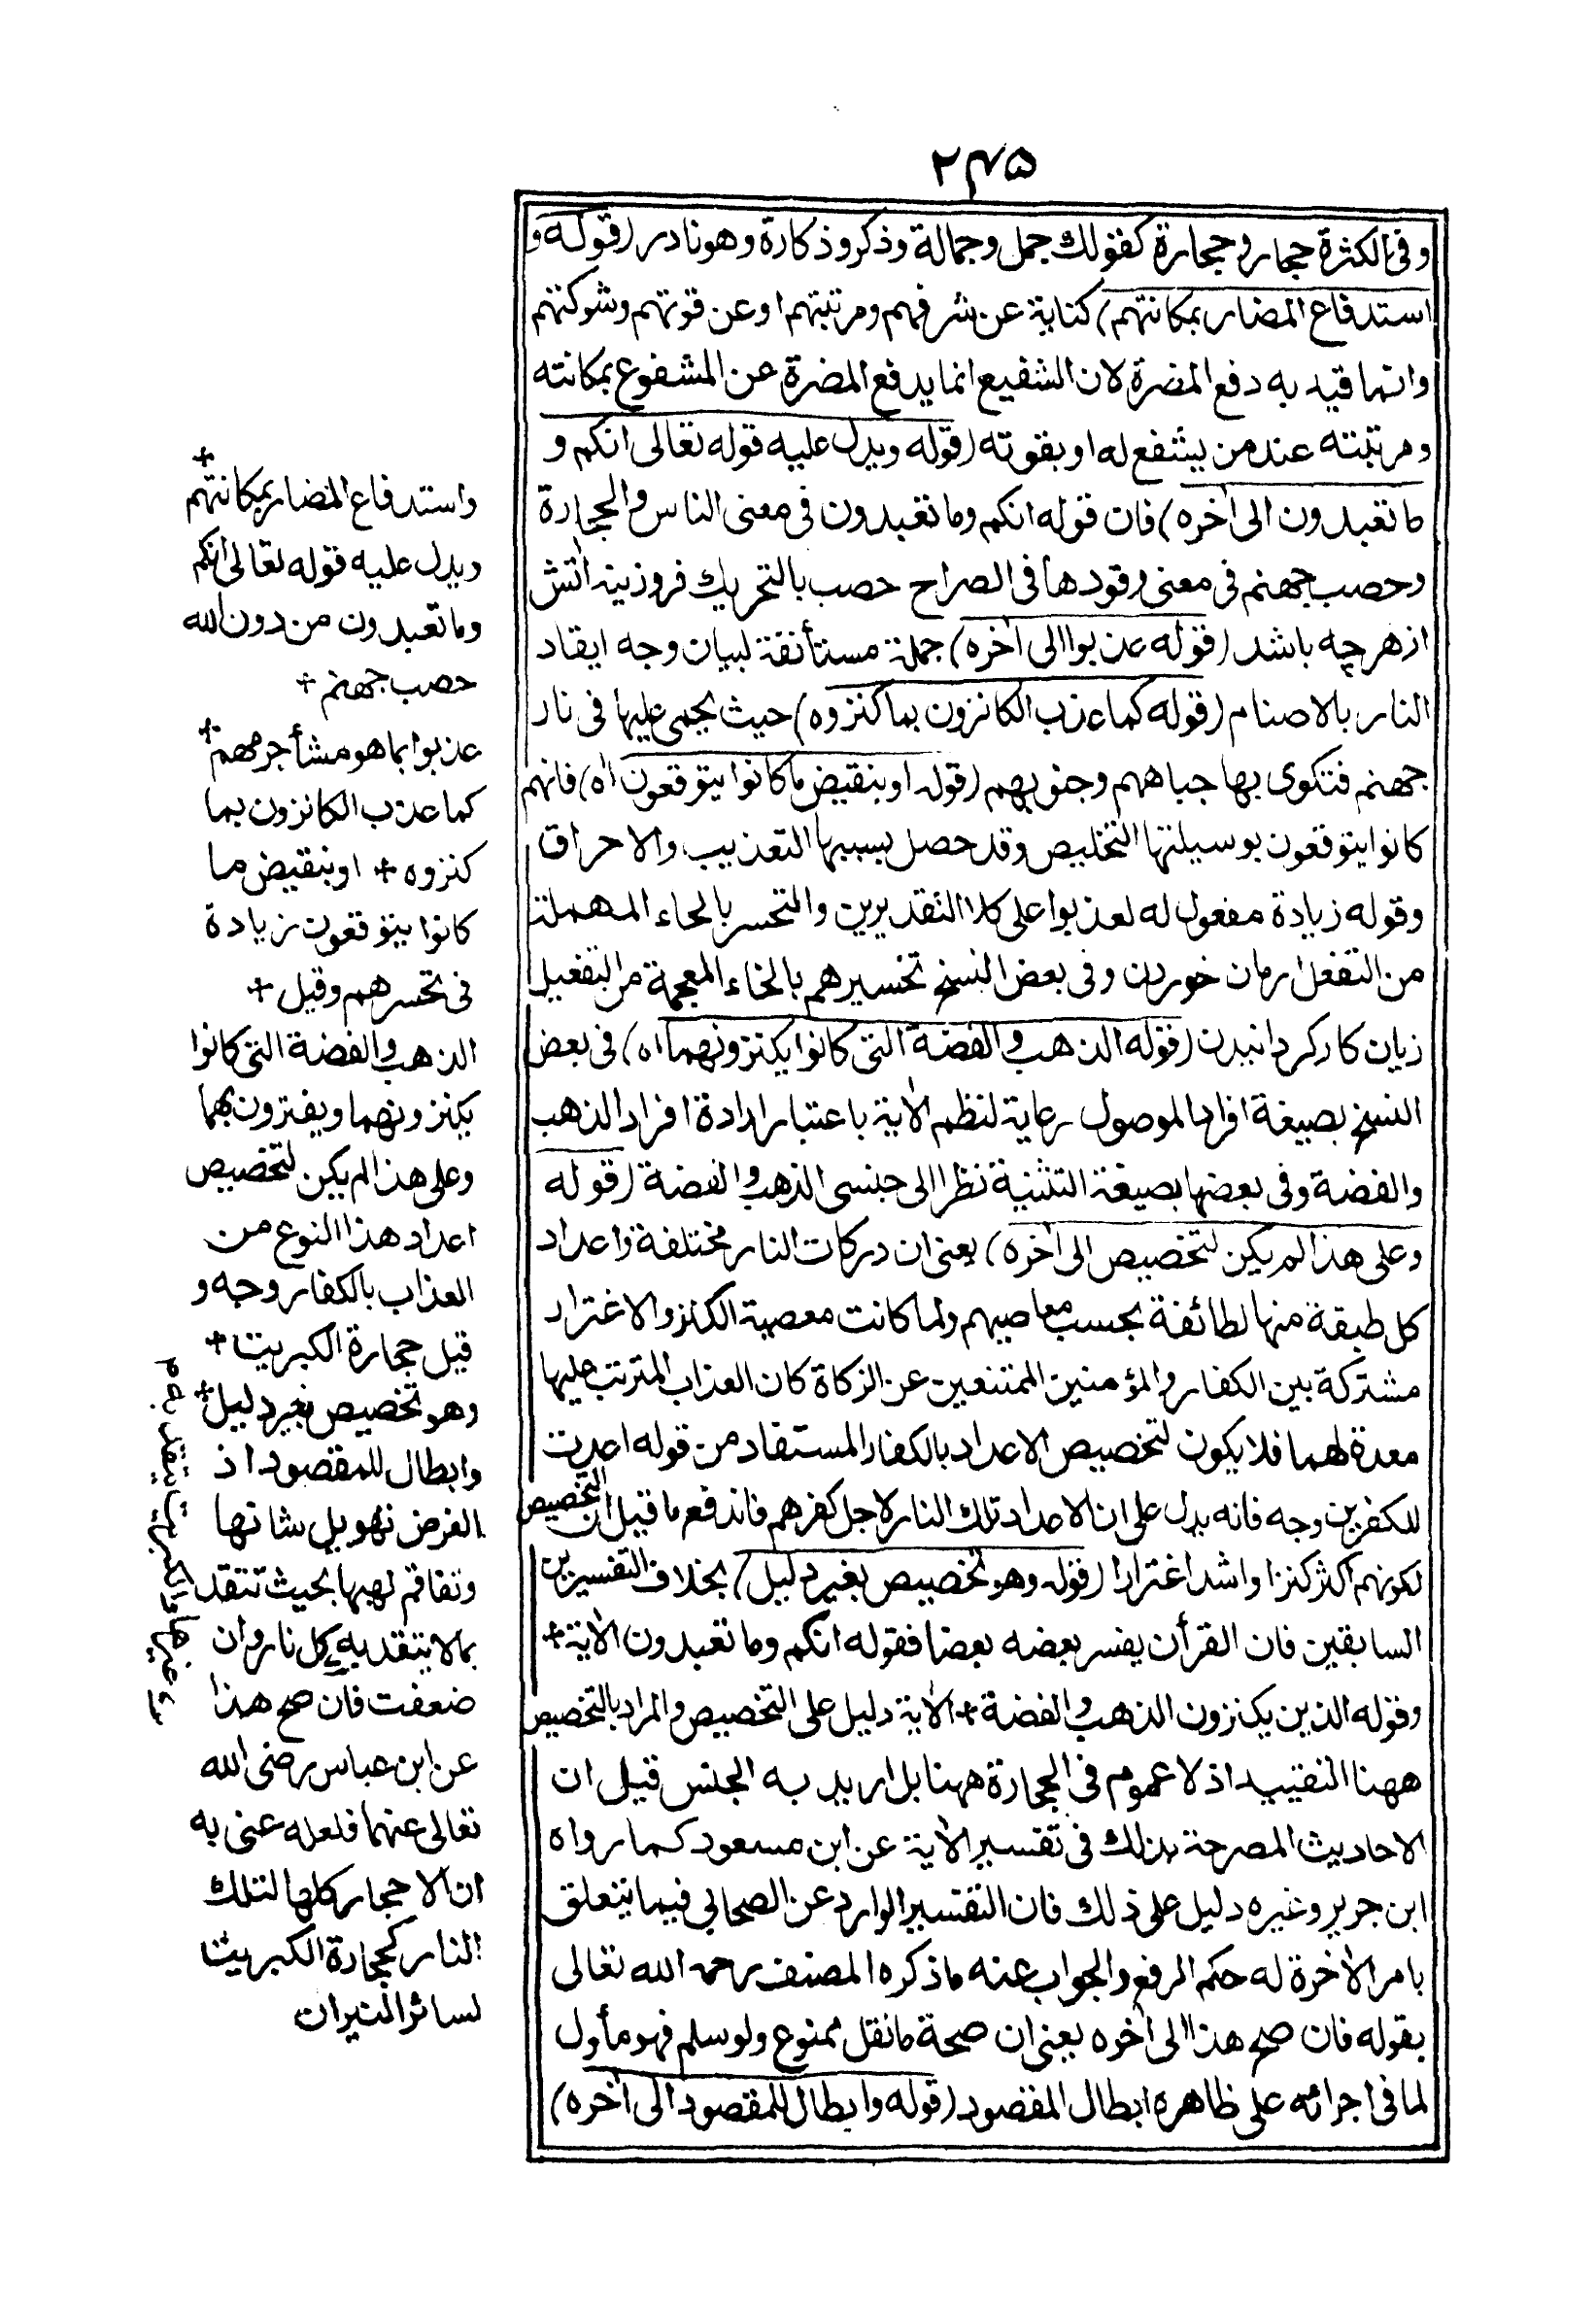 ٢٣٥
وفى الكثرة حجار وحجارة كقولك جمل وجمالة وذكر وذكارة وهو نادر (قوله و
استدفاع المضار بمكانتهم) كناية عن شرفهم ومرتبتهم او عن قوتهم وشوكتهم
وانما قيد به دفع المضرة لان الشفيع انما يدفع المضرة عن المشفوع بمكانته
ومرتبته عند من يشفع له او بقوته (قوله ويدل عليه قوله تعالى انكم و
ما تعبدون الى اٰخره) فان قوله انكم وما تعبدون فى معنى الناس والحجارة
وحصب جهنم فى معنى وقودها فى الصراح حصب بالتحريك فروزينه اٰتش
ازهرچه باشد (قوله عذبوا الى اٰخره) جملة مستأنفة لبيان وجه ايقاد
النار بالاصنام (قوله كما عذب الكانزون بما كنزوه) حيث يحمى عليها فى نار
جهنم فتكوى بها جباههم وجنوبهم (قوله او بنقيض ما كانوا يتوقعون اه) فانهم
كانوا يتوقعون بوسيلتها التخليص وقد حصل بسببها التعذيب والاحراق
وقوله زيادة مفعول له لعذبوا على كلا التقديرين والتحسر بالحاء المهملة
من التفعل ارمان خوردن وفى بعض النسخ تخسيرهم بالخاء المعجمة من التفعيل
زيان كار كردانيدن (قوله الذهب والفضة التى كانوا يكنزونهما اه) فى بعض
النسخ بصيغة افراد الموصول رعاية لنظم الاٰية باعتبار ارادة افراد الذهب
والفضة وفى بعضها بصيغة التثنية نظرا الى جنسى الذهب والفضة (قوله
وعلى هذا لم يكن لتخصيص الى اٰخره) يعنى ان دركات النار مختلفة واعداد
كل طبقة منها لطائفة بحسب معاصيهم ولما كانت معصية الكنز والاغترار
مشتركة بين الكفار والمؤمنين الممتنعين عن الزكاة كان العذاب المترتب عليها
معدة لهما فلا يكون لتخصيص الاعداد بالكفار المستفاد من قوله اعدت
للكفرين وجه فانه يدل على ان الاعداد تلك النار لاجل كفرهم فاندفع ما قيل ان التخصيص
لكونهم اكثر كنزا واشد اغترارا (قوله وهو تخصيص بغير دليل) بخلاف التفسيرين
السابقين فان القرأن يفسر بعضه بعضا فقوله انكم وما تعبدون الاٰية +
وقوله الذين يكنزون الذهب والفضة + الاٰية دليل على التخصيص والمراد بالتخصيص
ههنا التقييد اذ لا عموم فى الحجارة ههنا بل اريد به الجنس قيل ان
الاحاديث المصرحة بذلك فى تفسير الاٰية عن ابن مسعود كما رواه
ابن جرير وغيره دليل على ذلك فان التفسير الوارد عن الصحابى فيما يتعلق
بامر الاٰخرة له حكم الرفع والجواب عنه ما ذكره المصنف رحمه الله تعالى
بقوله فان صح هذا الى اٰخره يعنى ان صحة ما نقل ممنوع ولو سلم فهو مأول
لما فى اجرائه على ظاهره ابطال المقصود (قوله وابطال للمقصود الى اٰخره)
واستدفاع المضار بمكانتهم +
ويدل عليه قوله تعالى انكم
وما تعبدون من دون الله
حصب جهنم +
عذبوا بما هو منشأ جرمهم +
كما عذب الكانزون بما
كنزوه + او بنقيض ما
كانوا يتوقعون زيادة
فى تحسرهم وقيل +
الذهب والفضة التى كانوا
يكنزونهما ويغترون بهما
وعلى هذا لم يكن لتخصيص
اعداد هذا النوع من
العذاب بالكفار وجه و
قيل حجارة الكبريت +
وهو تخصيص بغير دليل +
وابطال للمقصود اذ
الغرض تهويل شانها
وتفاقم لهبها بحيث تتقد
بما لا يتقد به كل نار وان
ضعفت فان صح هذا
عن ابن عباس رضى الله
تعالى عنهما فلعله عنى به
ان الاحجار كلها لتلك
النار كحجارة الكبريت
لسائر النيران